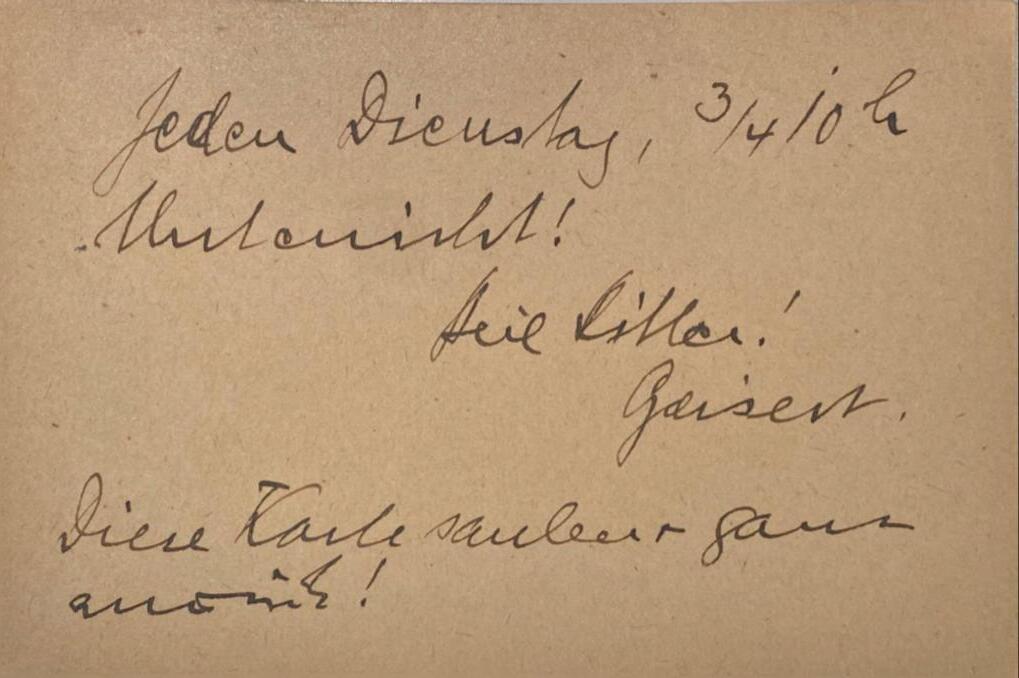 Jeden Dienstag, 3/4 10 h
Unterricht!
Heil Hitler!
Geisert.
Diese Karte sauber ganz